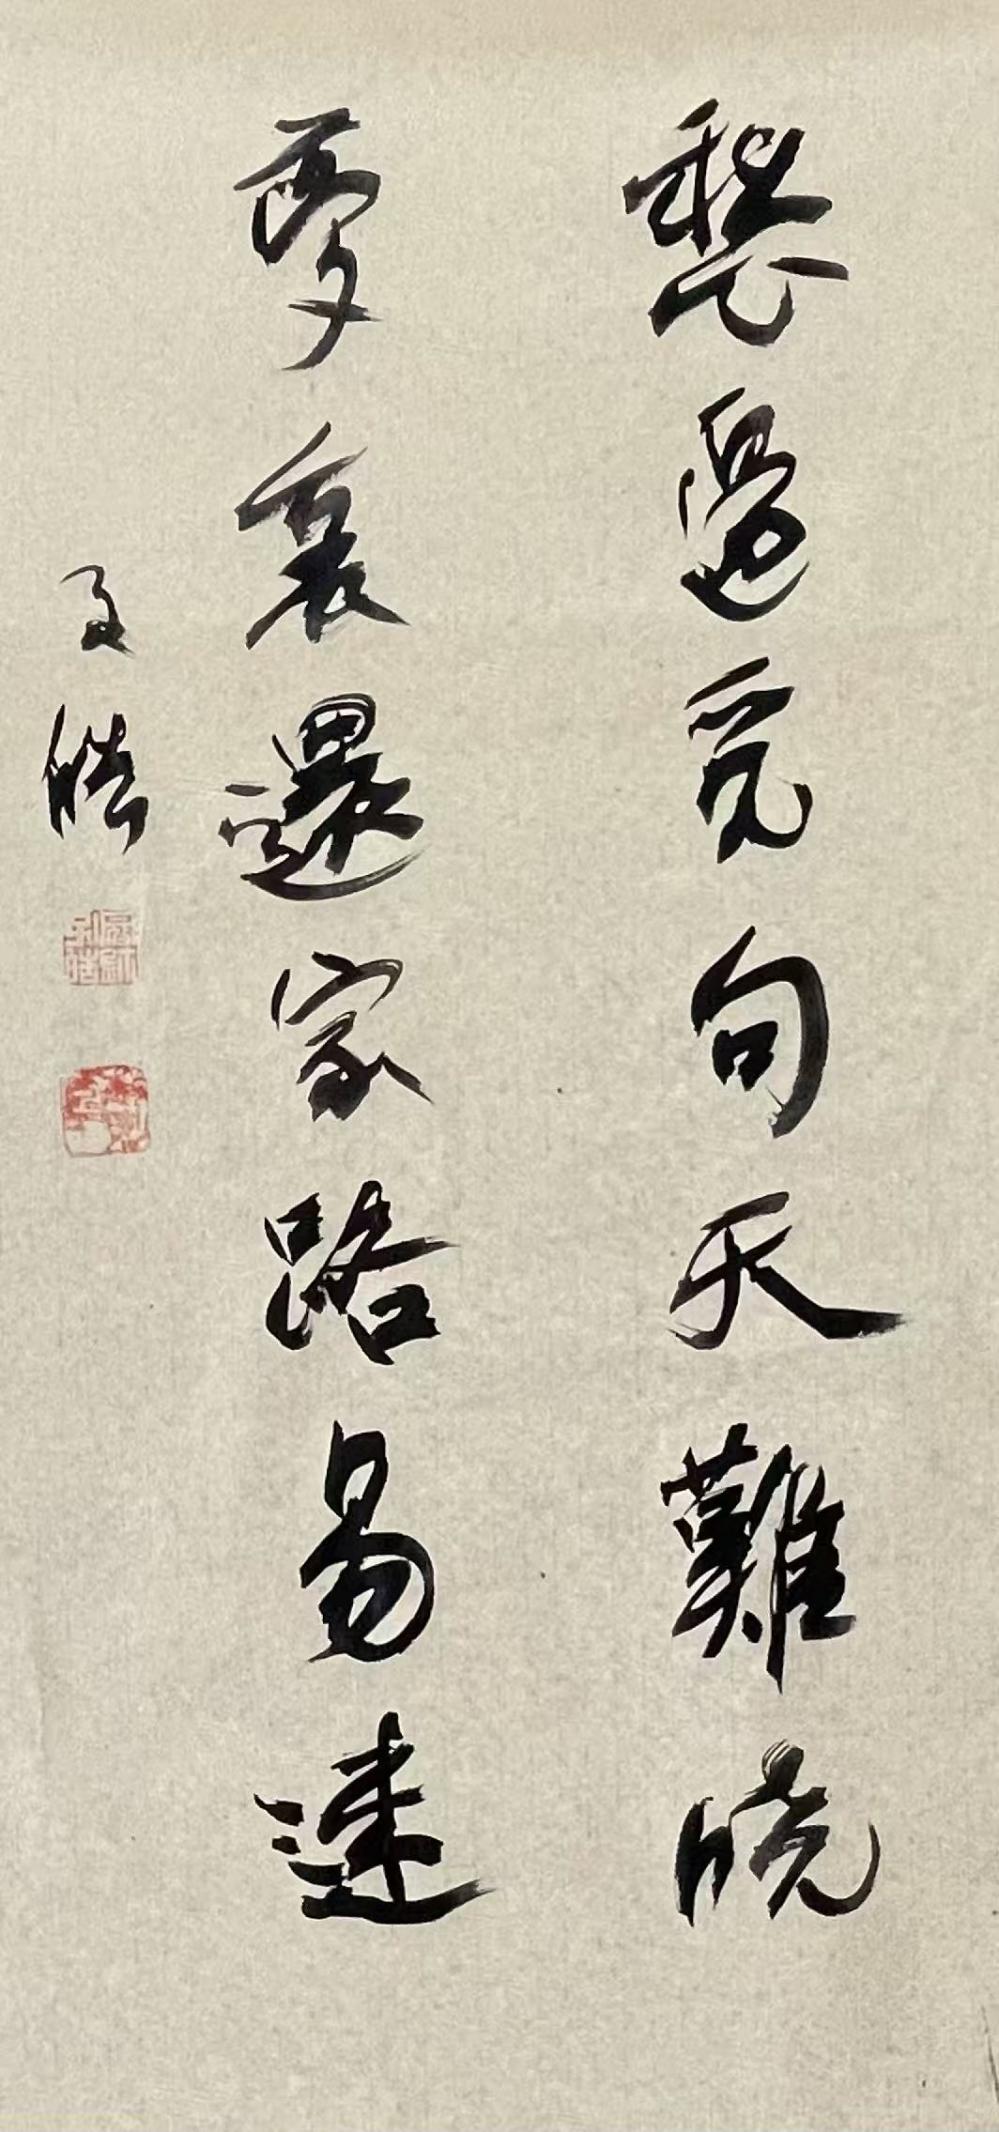 愁邊覓句天難曉
夢裏還家路易迷
文皓